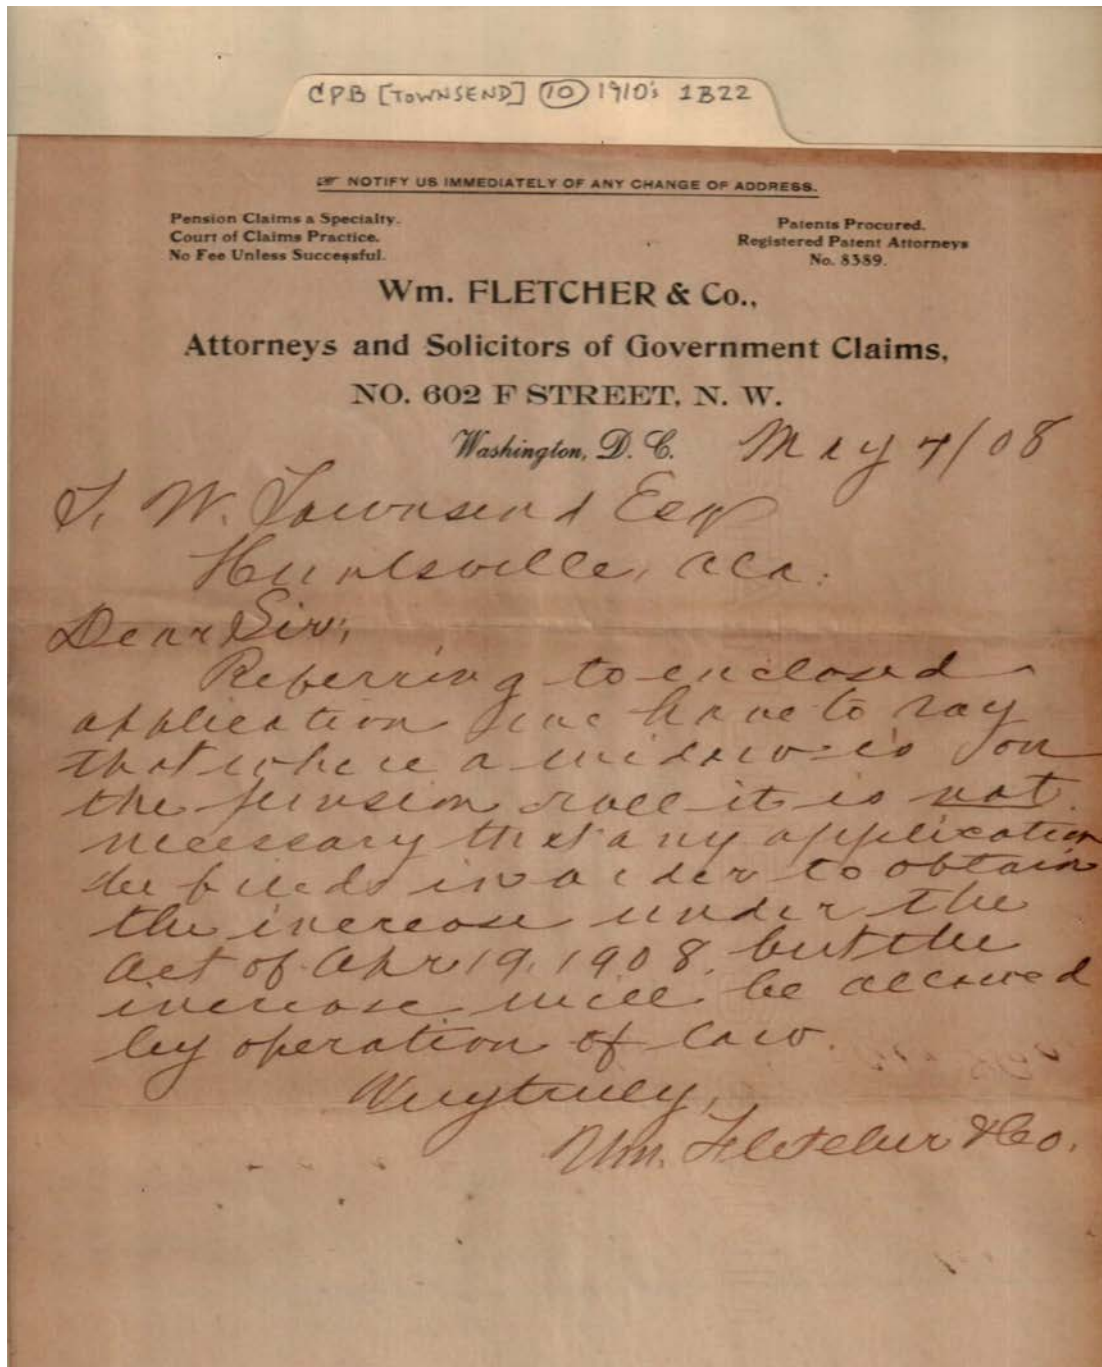 CPB [TOWNSEND] (10) 1910's 1B22
☞ NOTIFY US IMMEDIATELY OF ANY CHANGE OF ADDRESS.
Pension Claims a Specialty.
Court of Claims Practice.
No Fee Unless Successful.
Patents Procured.
Registered Patent Attorneys
No. 8389.
Wm. FLETCHER & Co.,
Attorneys and Solicitors of Government Claims,
NO. 602 F STREET, N. W.
Washington, D. C. May 4/08
W. Townsend Esq
Huntsville, Ala.
Dear Sir,
Referring to enclosed
application we have to say
that where a widow is on
the pension roll it is not
necessary that any application
be filed in order to obtain
the increase under the
Act of Apr 19, 1908, but the
increase will be allowed
by operation of law.
Very truly,
Wm. Fletcher & Co.